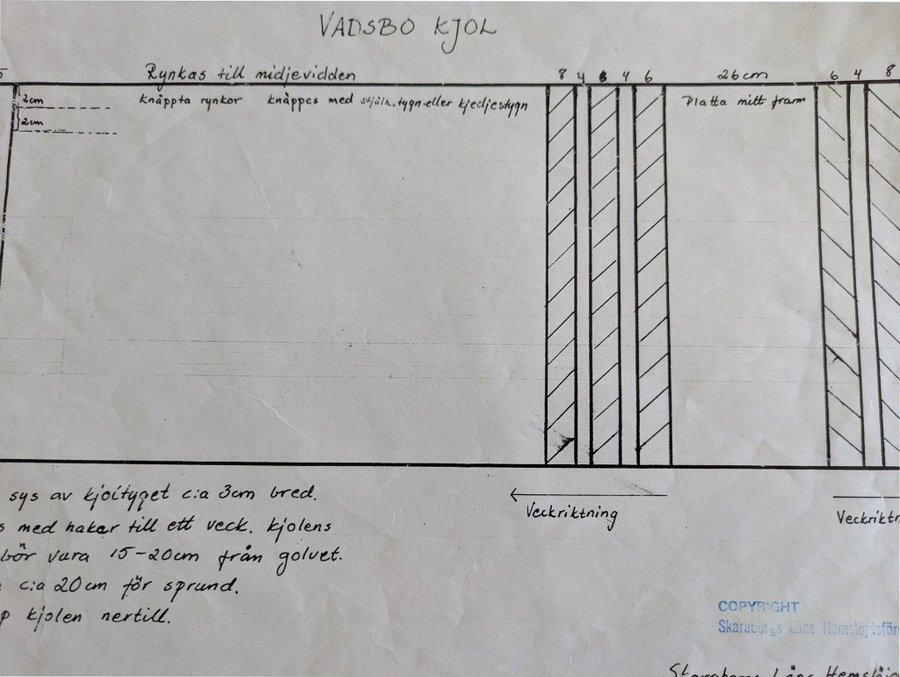 VADSBO KJOL
Rynkas till midjevidden 8 4 8 4 6 26cm 6 4 8
2cm knäppta rynkor knäppes med stjälk.tygn eller kjedjestygn Platta mitt fram
2cm
sys av kjoltyget c:a 3cm bred.
med hakar till ett veck. kjolens
bör vara 15-20cm från golvet.
c:a 20cm för sprund.
kjolen nertill.
Veckriktning Veckriktn
COPYRIGHT
Skaraborgs Läns Hemslöjdsför
Skaraborgs Läns Hemslöjd